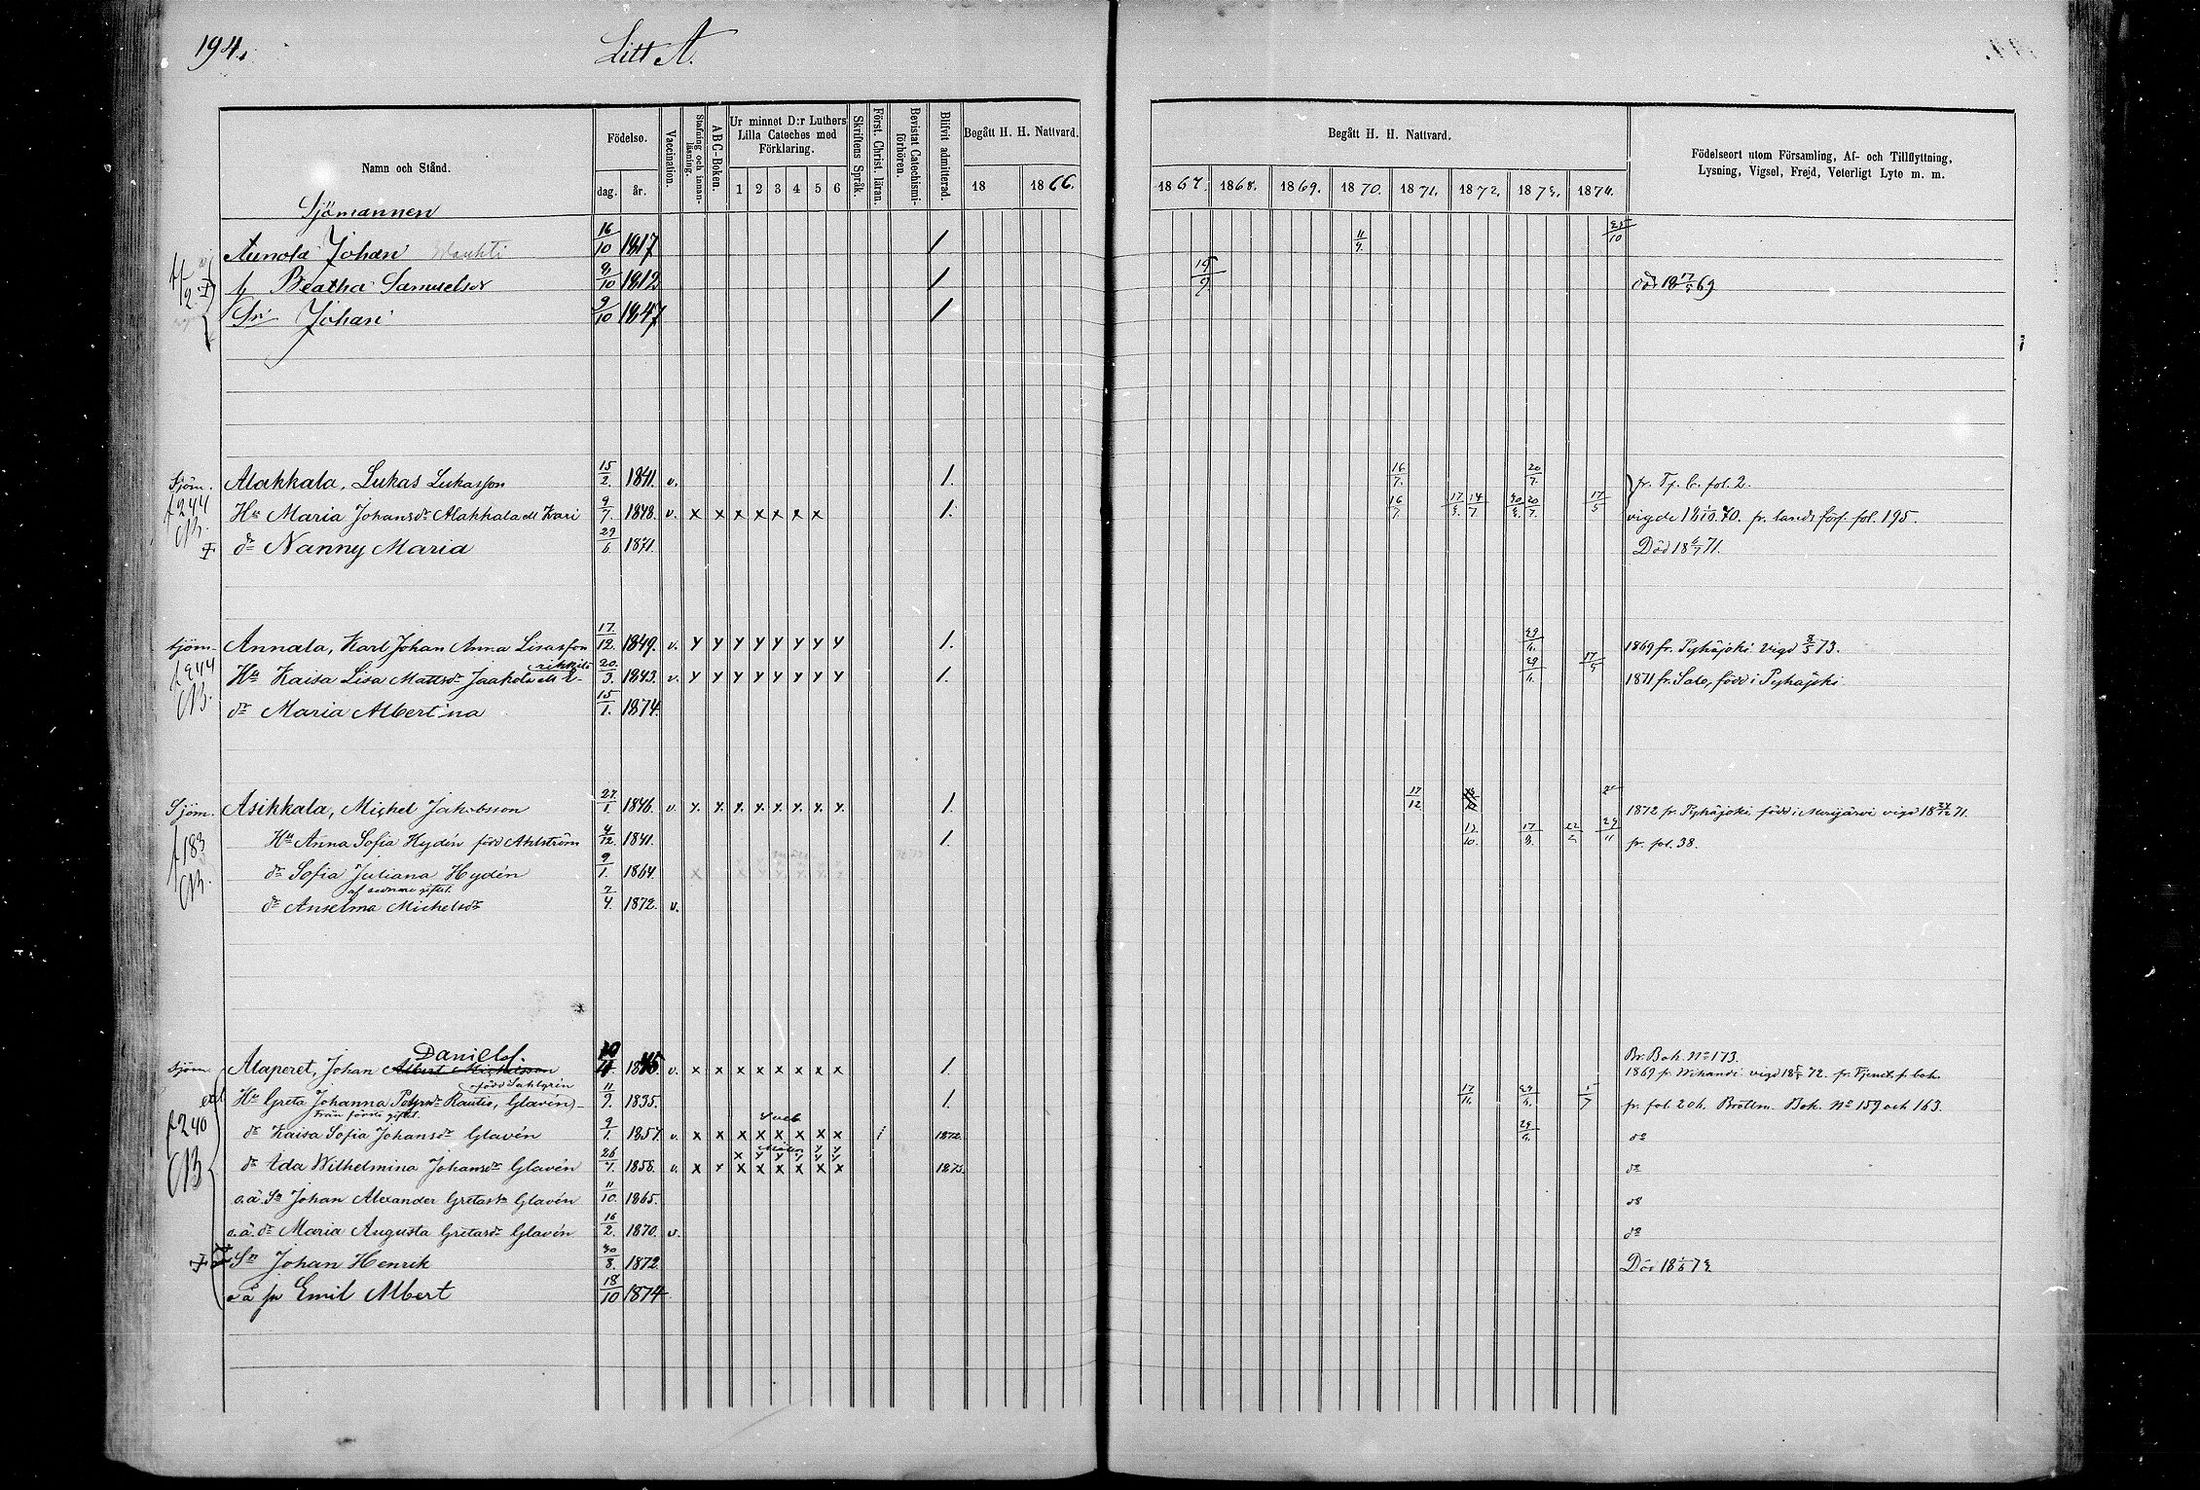 194.
Litt A.
Namn och Stånd.
Födelse.
dag.
år.
Vaccination.
Stafning och innanläsning.
ABC-Boken.
Ur minnet D:r Luthers Lilla Cateches med Förklaring.
1 2 3 4 5 6
Skriftens Språk.
Först. Christ. läran.
Bevistat Catechismiförhören.
Blifvit admitterad.
Begått H. H. Nattvard.
18 1866.
Begått H. H. Nattvard.
1867. 1868. 1869. 1870. 1871. 1872. 1873. 1874.
Födelseort utom Församling, Af- och Tillflyttning, Lysning, Vigsel, Frejd, Veterligt Lyte m. m.
Sjömannen
Aunola Johan 16/10 1817 / 11/9. 25/10
h Beatha Samuelsdr 8/10 1812 / död 18 17/5 69
Sn Johan 9/10 1847 /
Sjöm. Alakkala, Lukas Lukasson 15/2. 1841. v. 1. 16/7. 20/7. fr. Tj. b. fol. 2.
f 244 Hu Maria Johansdr Alakkala ell Kari 9/7. 1848. v. x x x x x x x 1. 16/7. 17/3. 14/7. 30/3. 20/7. 17/5 vigde 18 1/10. 70. fr. lands förs. fol. 195.
dr Nanny Maria 29/6 1871. Död 18 6/7 71.
Sjöm. Annala, Karl Johan Anna Lisasson 17./12. 1849. v. y y y y y y y y 1. 29/6. 1869 fr. Pyhäjoki. Vigd 8/5 73.
f 244 Hu Kaisa Lisa Mattsdr Jaakola ell 20./3. 1843. v. y y y y y y y y 1. 29/6. 17/5 1871 fr. Salo, född i Pyhäjoki
dr Maria Albertina 15/1. 1874.
Sjöm. Asikkala, Michel Jakobsson 27./1. 1846. v. y. y. y. y. y. y. y. y. 1. 17/12 1872 fr. Pyhäjoki, född i Merijärvi vigd 18 27/12 71.
f 183 Hu Anna Sofia Hydén född Ahlström 4/12. 1841. 1. 13/10. 17/3. 22/2 29/11 fr. fol. 38.
dr Sofia Juliana Hydén 9/1. 1864.
af denna giftet.
dr Anselma Michelsdr 7/4. 1872. v.
Daniels.
Sjöm Alaperet, Johan Albert Michelsson 10/4. 1845. v. x x x x x x x x 1.
Br. Bok. No 173.
1869 fr. Wihandi vigd 18 5/5 72. fr. Tjenst. f. bok.
född Sahlgrén
Hu Greta Johanna Petersdr Rautio, Glavén 11/9. 1835. 1. 17/11. 29/6. 5/7 fr. fol. 206. Brölln. Bok. No 159 och 163.
Från förste giftet.
f 240 dr Kaisa Sofia Johansdr Glavén 9/1. 1857. v. x x x x x x x x 1872. 29/6. do
dr Ida Wilhelmina Johansdr Glavén 26/7. 1858. v. x x x x x x x x 1873. do
o.ä. Sn Johan Alexander Gretasn Glavén 11/10. 1865. do
o.ä. dr Maria Augusta Gretasdr Glavén 16/2. 1870. v. do
Sn Johan Henrik 30/8. 1872. Död 18 1/6 73
o ä sn Emil Albert 18/10 1874